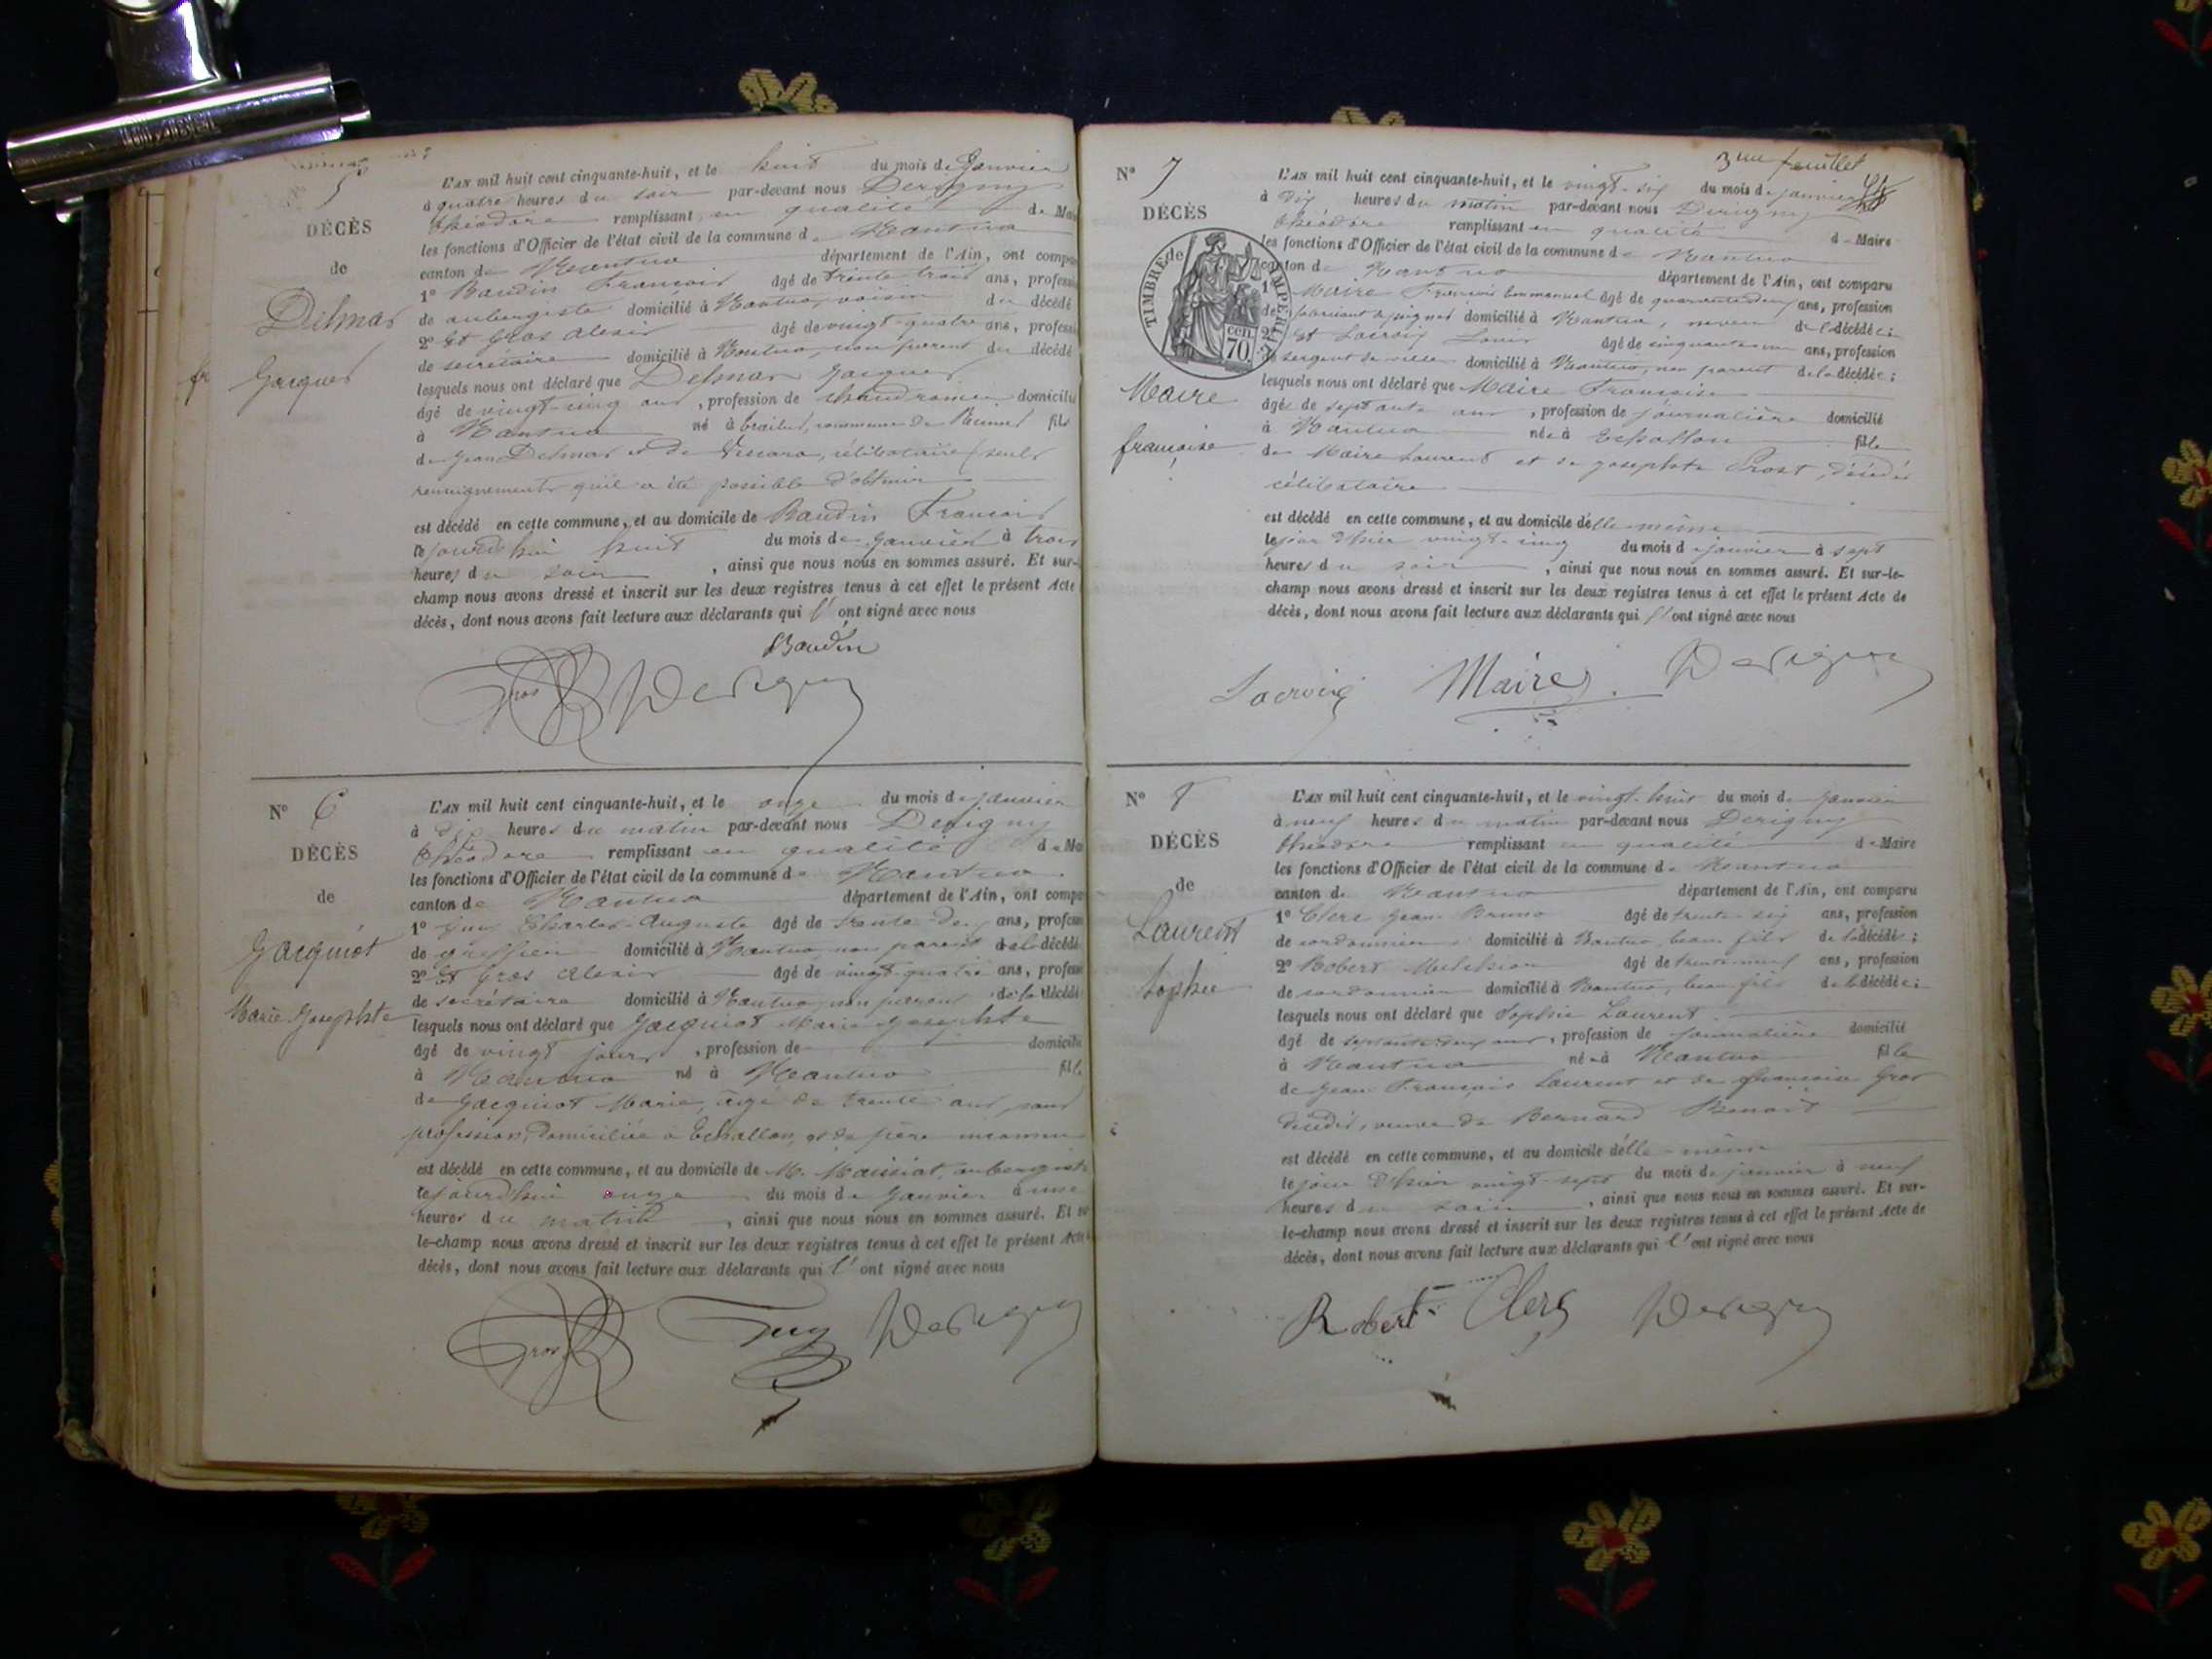 5
DÉCÈS
de
Delmas
Jacques
L'AN mil huit cent cinquante-huit, et le huit du mois de Janvier
à quatre heures du soir par-devant nous Derigny
théodore remplissant en qualité de Mai
les fonctions d'Officier de l'état civil de la commune de Nantua
canton de Nantua département de l'Ain, ont compa
1º Baudin François âgé de trente trois ans, professi
de aubergiste domicilié à Nantua, voisin du décédé
2º Et Gros Alexis âgé de vingt-quatre ans, professi
de secrétaire domicilié à Nantua, non parent du décédé
lesquels nous ont déclaré que Delmas Jacques
âgé de vingt-cinq ans, profession de chaudronnier domicilié
à Nantua né à commune de fils
de Jean Delmas et de célibataire (seuls
renseignements qu'il a été possible d'obtenir
est décédé en cette commune, et au domicile de Baudin François
le jourd'hui huit du mois de Janvier à trois
heures du soir, ainsi que nous nous en sommes assuré. Et sur-
champ nous avons dressé et inscrit sur les deux registres tenus à cet effet le présent Acte
décès, dont nous avons fait lecture aux déclarants qui l'ont signé avec nous
Baudin
Gros Derigny
Nº 6
DÉCÈS
de
Jacquiot
Marie Josephte
L'AN mil huit cent cinquante-huit, et le onze du mois de janvier
à dix heures du matin par-devant nous Derigny
théodore remplissant en qualité de Ma
les fonctions d'Officier de l'état civil de la commune de Nantua
canton de Nantua département de l'Ain, ont compa
1º Guy Charles-Auguste âgé de trente-deux ans, profess
de greffier domicilié à Nantua, non parent de la décédé
2º Et Gros Alexis âgé de vingt-quatre ans, profess
de secrétaire domicilié à Nantua, non parent de la décédé
lesquels nous ont déclaré que Jacquiot Marie Josephte
âgé de vingt jours, profession de domicilié
à Nantua né à Nantua fille
de Jacquiot Marie, âgée de trente ans, sans
profession, domiciliée à Echallon, et de père inconnu
est décédé en cette commune, et au domicile de M. Maissiat, aubergiste
le jourd'hui onze du mois de Janvier à une
heures du matin, ainsi que nous nous en sommes assuré. Et su
le-champ nous avons dressé et inscrit sur les deux registres tenus à cet effet le présent Acte
décès, dont nous avons fait lecture aux déclarants qui l'ont signé avec nous
Gros Guy Derigny
3me feuillet
Nº 7
DÉCÈS
de
TIMBRE IMPÉRIAL
cen 70
Maire
françoise
L'AN mil huit cent cinquante-huit, et le vingt-six du mois de janvier
à dix heures du matin par-devant nous Derigny
théodore remplissant en qualité de Maire
les fonctions d'Officier de l'état civil de la commune de Nantua
canton de Nantua département de l'Ain, ont comparu
1º Maire François Emmanuel âgé de quarante deux ans, profession
de fabricant de peignes domicilié à Nantua, neveu de la décédée;
2º Et Lacroix Louis âgé de cinquante un ans, profession
de sergent de ville domicilié à Nantua, non parent de la décédée;
lesquels nous ont déclaré que Maire Françoise
âgée de septante ans, profession de journalière domicilié
à Nantua née à Echallon fille
de Maire Laurent et de Josephte Prost, décédés
célibataire
est décédé en cette commune, et au domicile d'elle-même
le jour d'hier vingt-cinq du mois de janvier à sept
heures du soir, ainsi que nous nous en sommes assuré. Et sur-le-
champ nous avons dressé et inscrit sur les deux registres tenus à cet effet le présent Acte de
décès, dont nous avons fait lecture aux déclarants qui l'ont signé avec nous
Lacroix Maire Derigny
Nº 8
DÉCÈS
de
Laurent
Sophie
L'AN mil huit cent cinquante-huit, et le vingt-huit du mois de janvier
à neuf heures du matin par-devant nous Derigny
théodore remplissant en qualité de Maire
les fonctions d'Officier de l'état civil de la commune de Nantua
canton de Nantua département de l'Ain, ont comparu
1º Clerc Jean Bruno âgé de trente-six ans, profession
de cordonnier domicilié à Nantua, beau fils de la décédée;
2º Robert Melchior âgé de trente-neuf ans, profession
de cordonnier domicilié à Nantua, beau fils de la décédée;
lesquels nous ont déclaré que Sophie Laurent
âgé de ans, profession de journalière domicilié
à Nantua née à Nantua fille
de Jean François Laurent et de Françoise Gros
décédés, veuve de Bernard Benoit
est décédé en cette commune, et au domicile d'elle-même
le jour d'hier vingt-sept du mois de janvier à neuf
heures du soir, ainsi que nous nous en sommes assuré. Et sur-
le-champ nous avons dressé et inscrit sur les deux registres tenus à cet effet le présent Acte de
décès, dont nous avons fait lecture aux déclarants qui l'ont signé avec nous
Robert Clerc Derigny